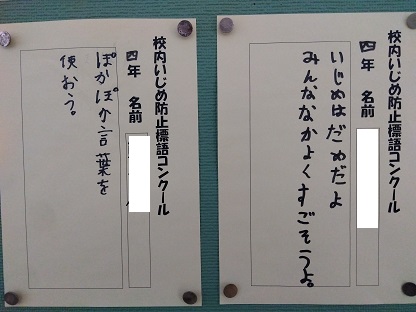 校内いじめ防止標語コンクール
四年　名前
いじめはだめだよ
みんななかよくすごそうよ。
校内いじめ防止標語コンクール
四年　名前
ぽかぽか言葉を
使おう。